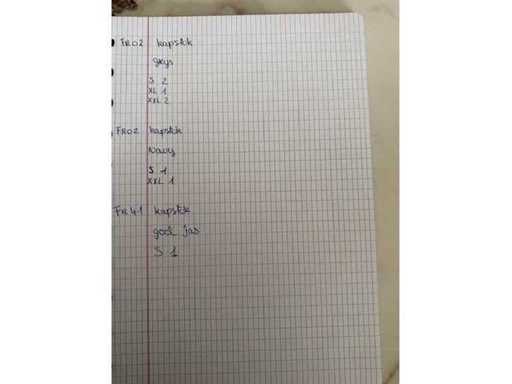 FR02 kapstok
Grijs
S 2
XL 1
XXL 2
FR02 kapstok
Navy
S 1
XXL 1
FR41 kapstok
jas
S 1